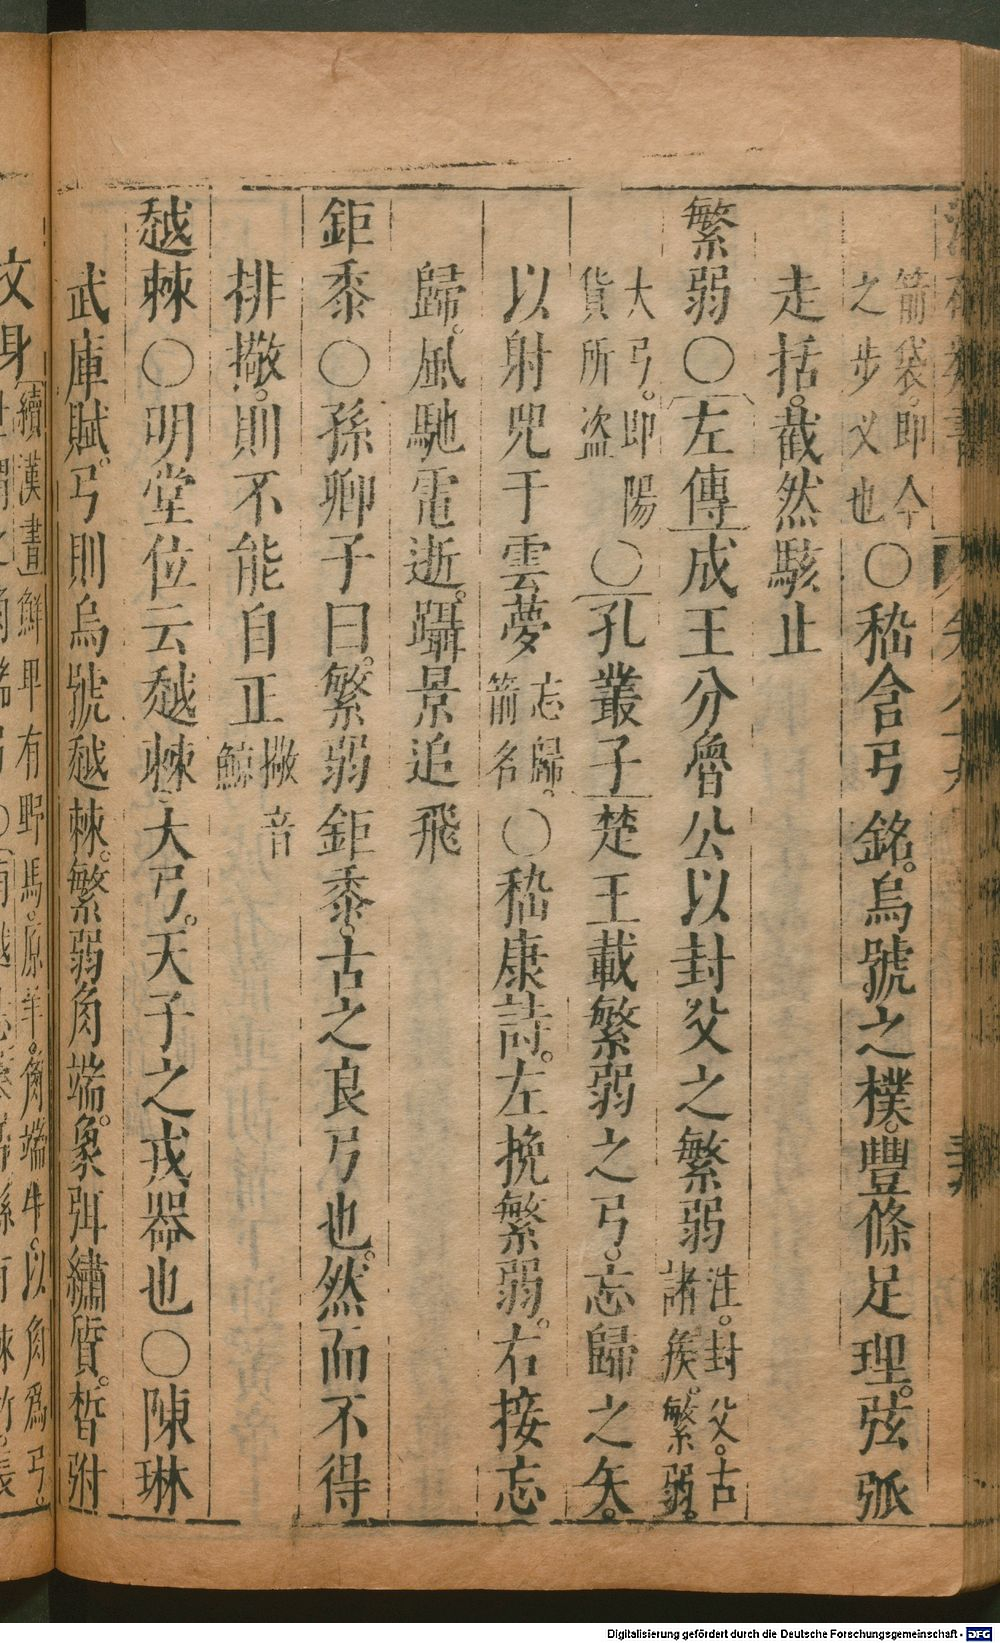 箭袋。即今
之步义也
○嵇含弓銘。烏號之樸。豐條足理。弦弧
走括。截然駭止
繁弱○左傳成王分魯公以封父之繁弱
注。封父。古
諸侯。繁弱。
大弓。即陽
貨所盗
○孔叢子楚王載繁弱之弓。忘歸之矢。
以射兕于雲夢
忘歸。
箭名
○嵇康詩。左挽繁弱。右接忘
歸。風馳電逝。躡景追飛
鉅黍○孫卿子曰。繁弱鉅黍。古之良弓也。然而不得
排㯳。則不能自正
㯳音
鯨
越棘○明堂位云越棘大弓。天子之戎器也○陳琳
武庫賦。弓則烏號越棘。繁弱角端。象弭繡質。晳弣
文身
續漢書鮮卑有野馬。原羊。角端牛。以角爲弓。
Digitalisierung gefördert durch die Deutsche Forschungsgemeinschaft - DFG